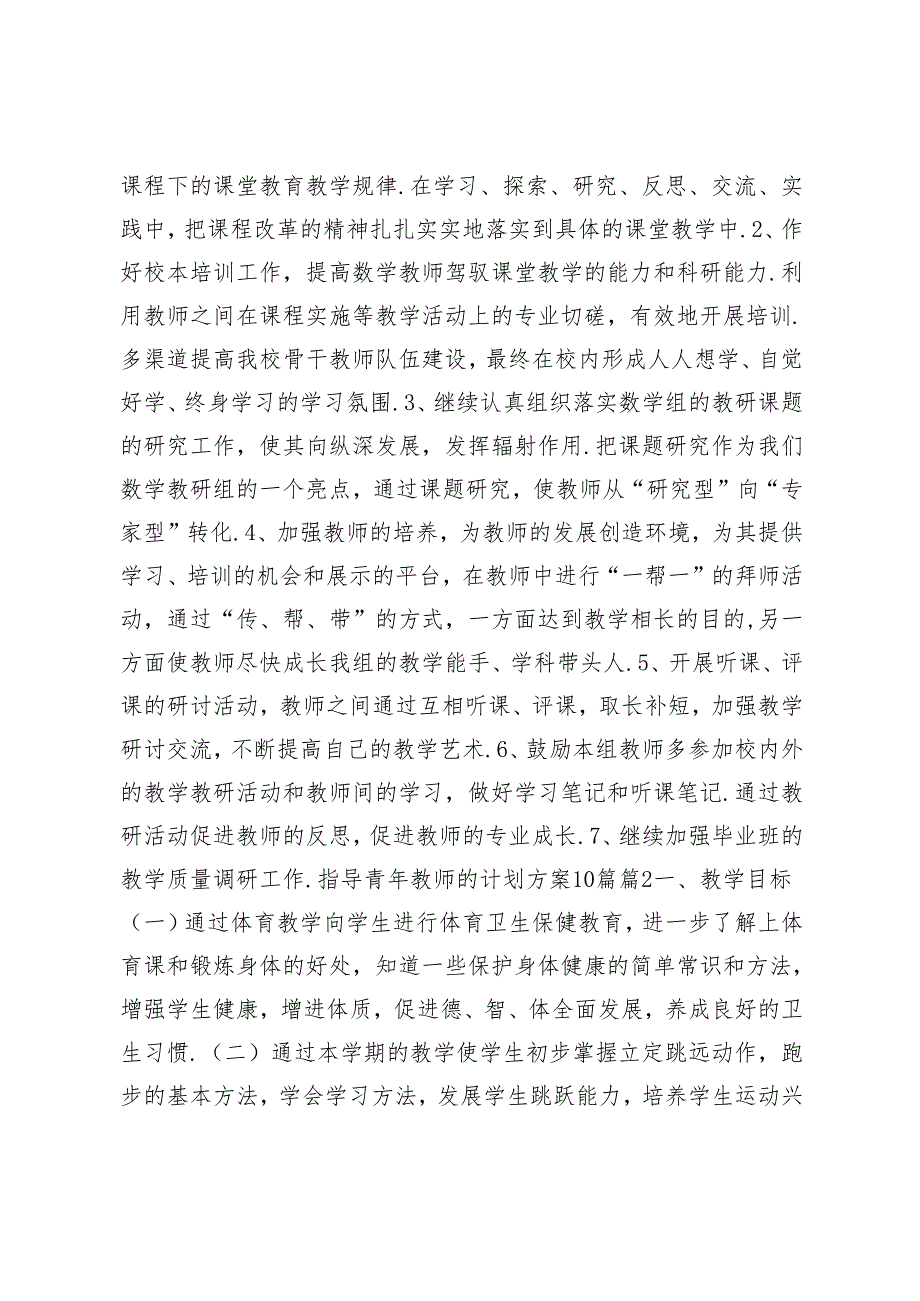 课程下的课堂教育教学规律.在学习、探索、研究、反思、交流、实
践中，把课程改革的精神扎扎实实地落实到具体的课堂教学中.2、作
好校本培训工作，提高数学教师驾驭课堂教学的能力和科研能力.利
用教师之间在课程实施等教学活动上的专业切磋，有效地开展培训.
多渠道提高我校骨干教师队伍建设，最终在校内形成人人想学、自觉
好学、终身学习的学习氛围.3、继续认真组织落实数学组的教研课题
的研究工作，使其向纵深发展，发挥辐射作用.把课题研究作为我们
数学教研组的一个亮点，通过课题研究，使教师从“研究型”向“专
家型”转化.4、加强教师的培养，为教师的发展创造环境，为其提供
学习、培训的机会和展示的平台，在教师中进行“一帮一”的拜师活
动，通过“传、帮、带”的方式，一方面达到教学相长的目的,另一
方面使教师尽快成长我组的教学能手、学科带头人.5、开展听课、评
课的研讨活动，教师之间通过互相听课、评课，取长补短，加强教学
研讨交流，不断提高自己的教学艺术.6、鼓励本组教师多参加校内外
的教学教研活动和教师间的学习，做好学习笔记和听课笔记.通过教
研活动促进教师的反思，促进教师的专业成长.7、继续加强毕业班的
教学质量调研工作.指导青年教师的计划方案10篇篇2一、教学目标
（一）通过体育教学向学生进行体育卫生保健教育，进一步了解上体
育课和锻炼身体的好处，知道一些保护身体健康的简单常识和方法，
增强学生健康，增进体质，促进德、智、体全面发展，养成良好的卫
生习惯.（二）通过本学期的教学使学生初步掌握立定跳远动作，跑
步的基本方法，学会学习方法，发展学生跳跃能力，培养学生运动兴